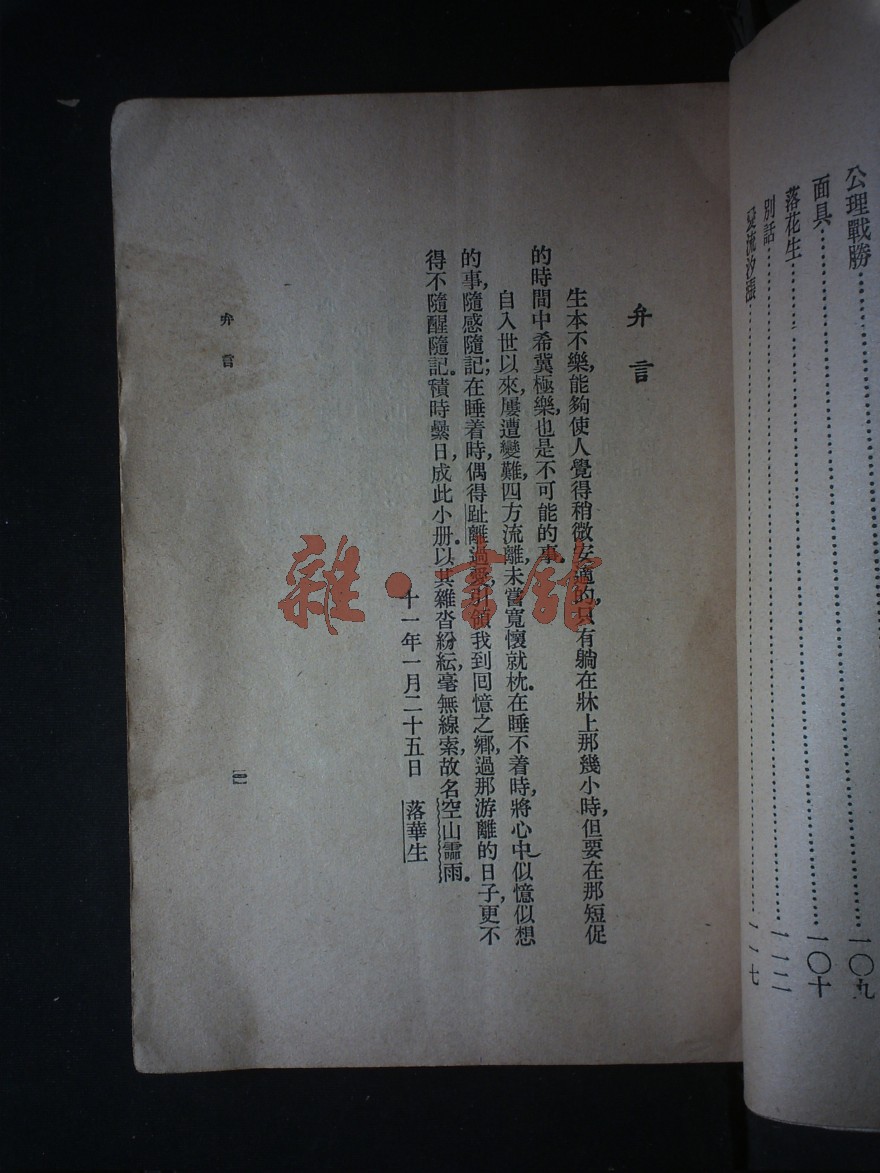 公理戰勝……一〇九
面具……一〇十
落花生……
別話……一一二
愛流汐漲……一一七
弁言
生本不樂，能夠使人覺得稍微安適的，只有躺在牀上那幾小時，但要在那短促
的時間中希冀極樂，也是不可能的事。
自入世以來，屢遭變難，四方流離，未嘗寬懷就枕。在睡不着時，將心中似憶似想
的事，隨感隨記；在睡着時，偶得趾離過愛，引領我到回憶之鄉，過那游離的日子，更不
得不隨醒隨記。積時纍日，成此小册。以其雜沓紛紜，毫無線索，故名空山靈雨。
十一年一月二十五日　落華生
弁言
雜·書館